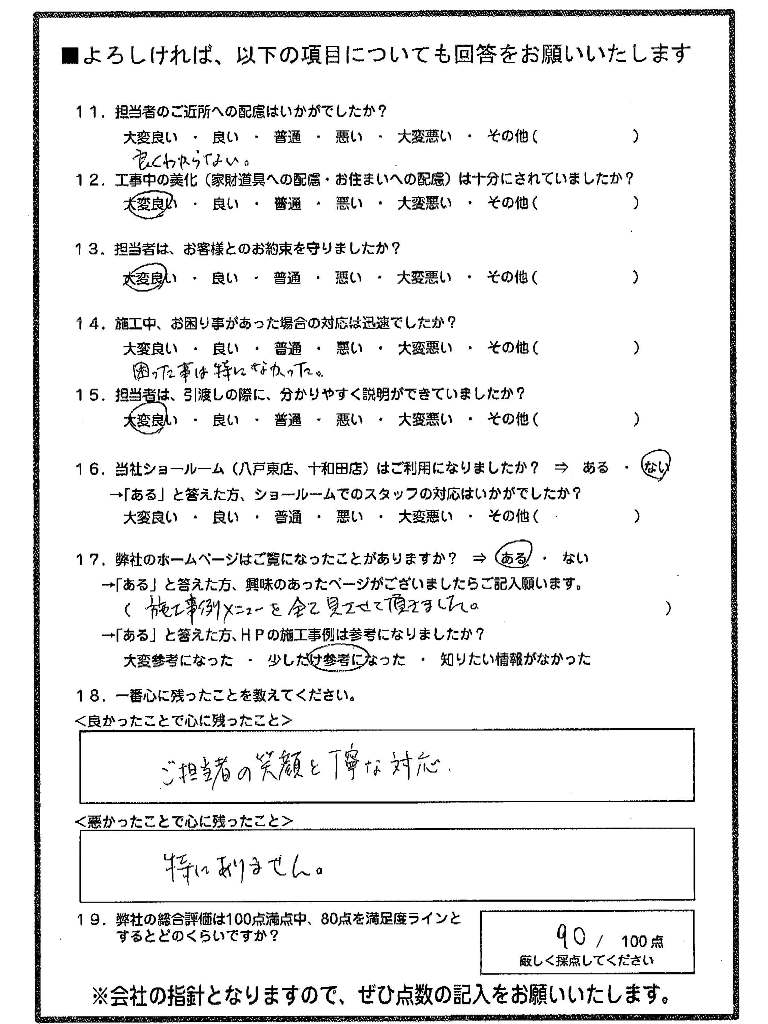 ■よろしければ、以下の項目についても回答をお願いいたします
11．担当者のご近所への配慮はいかがでしたか？
大変良い ・ 良い ・ 普通 ・ 悪い ・ 大変悪い ・ その他（ ）
良くわからない。
12．工事中の美化（家財道具への配慮・お住まいへの配慮）は十分にされていましたか？
大変良い ・ 良い ・ 普通 ・ 悪い ・ 大変悪い ・ その他（ ）
13．担当者は、お客様とのお約束を守りましたか？
大変良い ・ 良い ・ 普通 ・ 悪い ・ 大変悪い ・ その他（ ）
14．施工中、お困り事があった場合の対応は迅速でしたか？
大変良い ・ 良い ・ 普通 ・ 悪い ・ 大変悪い ・ その他（ ）
困った事は特になかった。
15．担当者は、引渡しの際に、分かりやすく説明ができていましたか？
大変良い ・ 良い ・ 普通 ・ 悪い ・ 大変悪い ・ その他（ ）
16．当社ショールーム（八戸東店、十和田店）はご利用になりましたか？ ⇒ ある ・ ない
→「ある」と答えた方、ショールームでのスタッフの対応はいかがでしたか？
大変良い ・ 良い ・ 普通 ・ 悪い ・ 大変悪い ・ その他（ ）
17．弊社のホームページはご覧になったことがありますか？ ⇒ ある ・ ない
→「ある」と答えた方、興味のあったページがございましたらご記入願います。
（ 施工事例メニューを全て見させて頂きました。 ）
→「ある」と答えた方、HPの施工事例は参考になりましたか？
大変参考になった ・ 少しだけ参考になった ・ 知りたい情報がなかった
18．一番心に残ったことを教えてください。
＜良かったことで心に残ったこと＞
ご担当者の笑顔と丁寧な対応．
＜悪かったことで心に残ったこと＞
特にありません。
19．弊社の総合評価は100点満点中、80点を満足度ラインと
するとどのくらいですか？
90 / 100点
厳しく採点してください
※会社の指針となりますので、ぜひ点数の記入をお願いいたします。